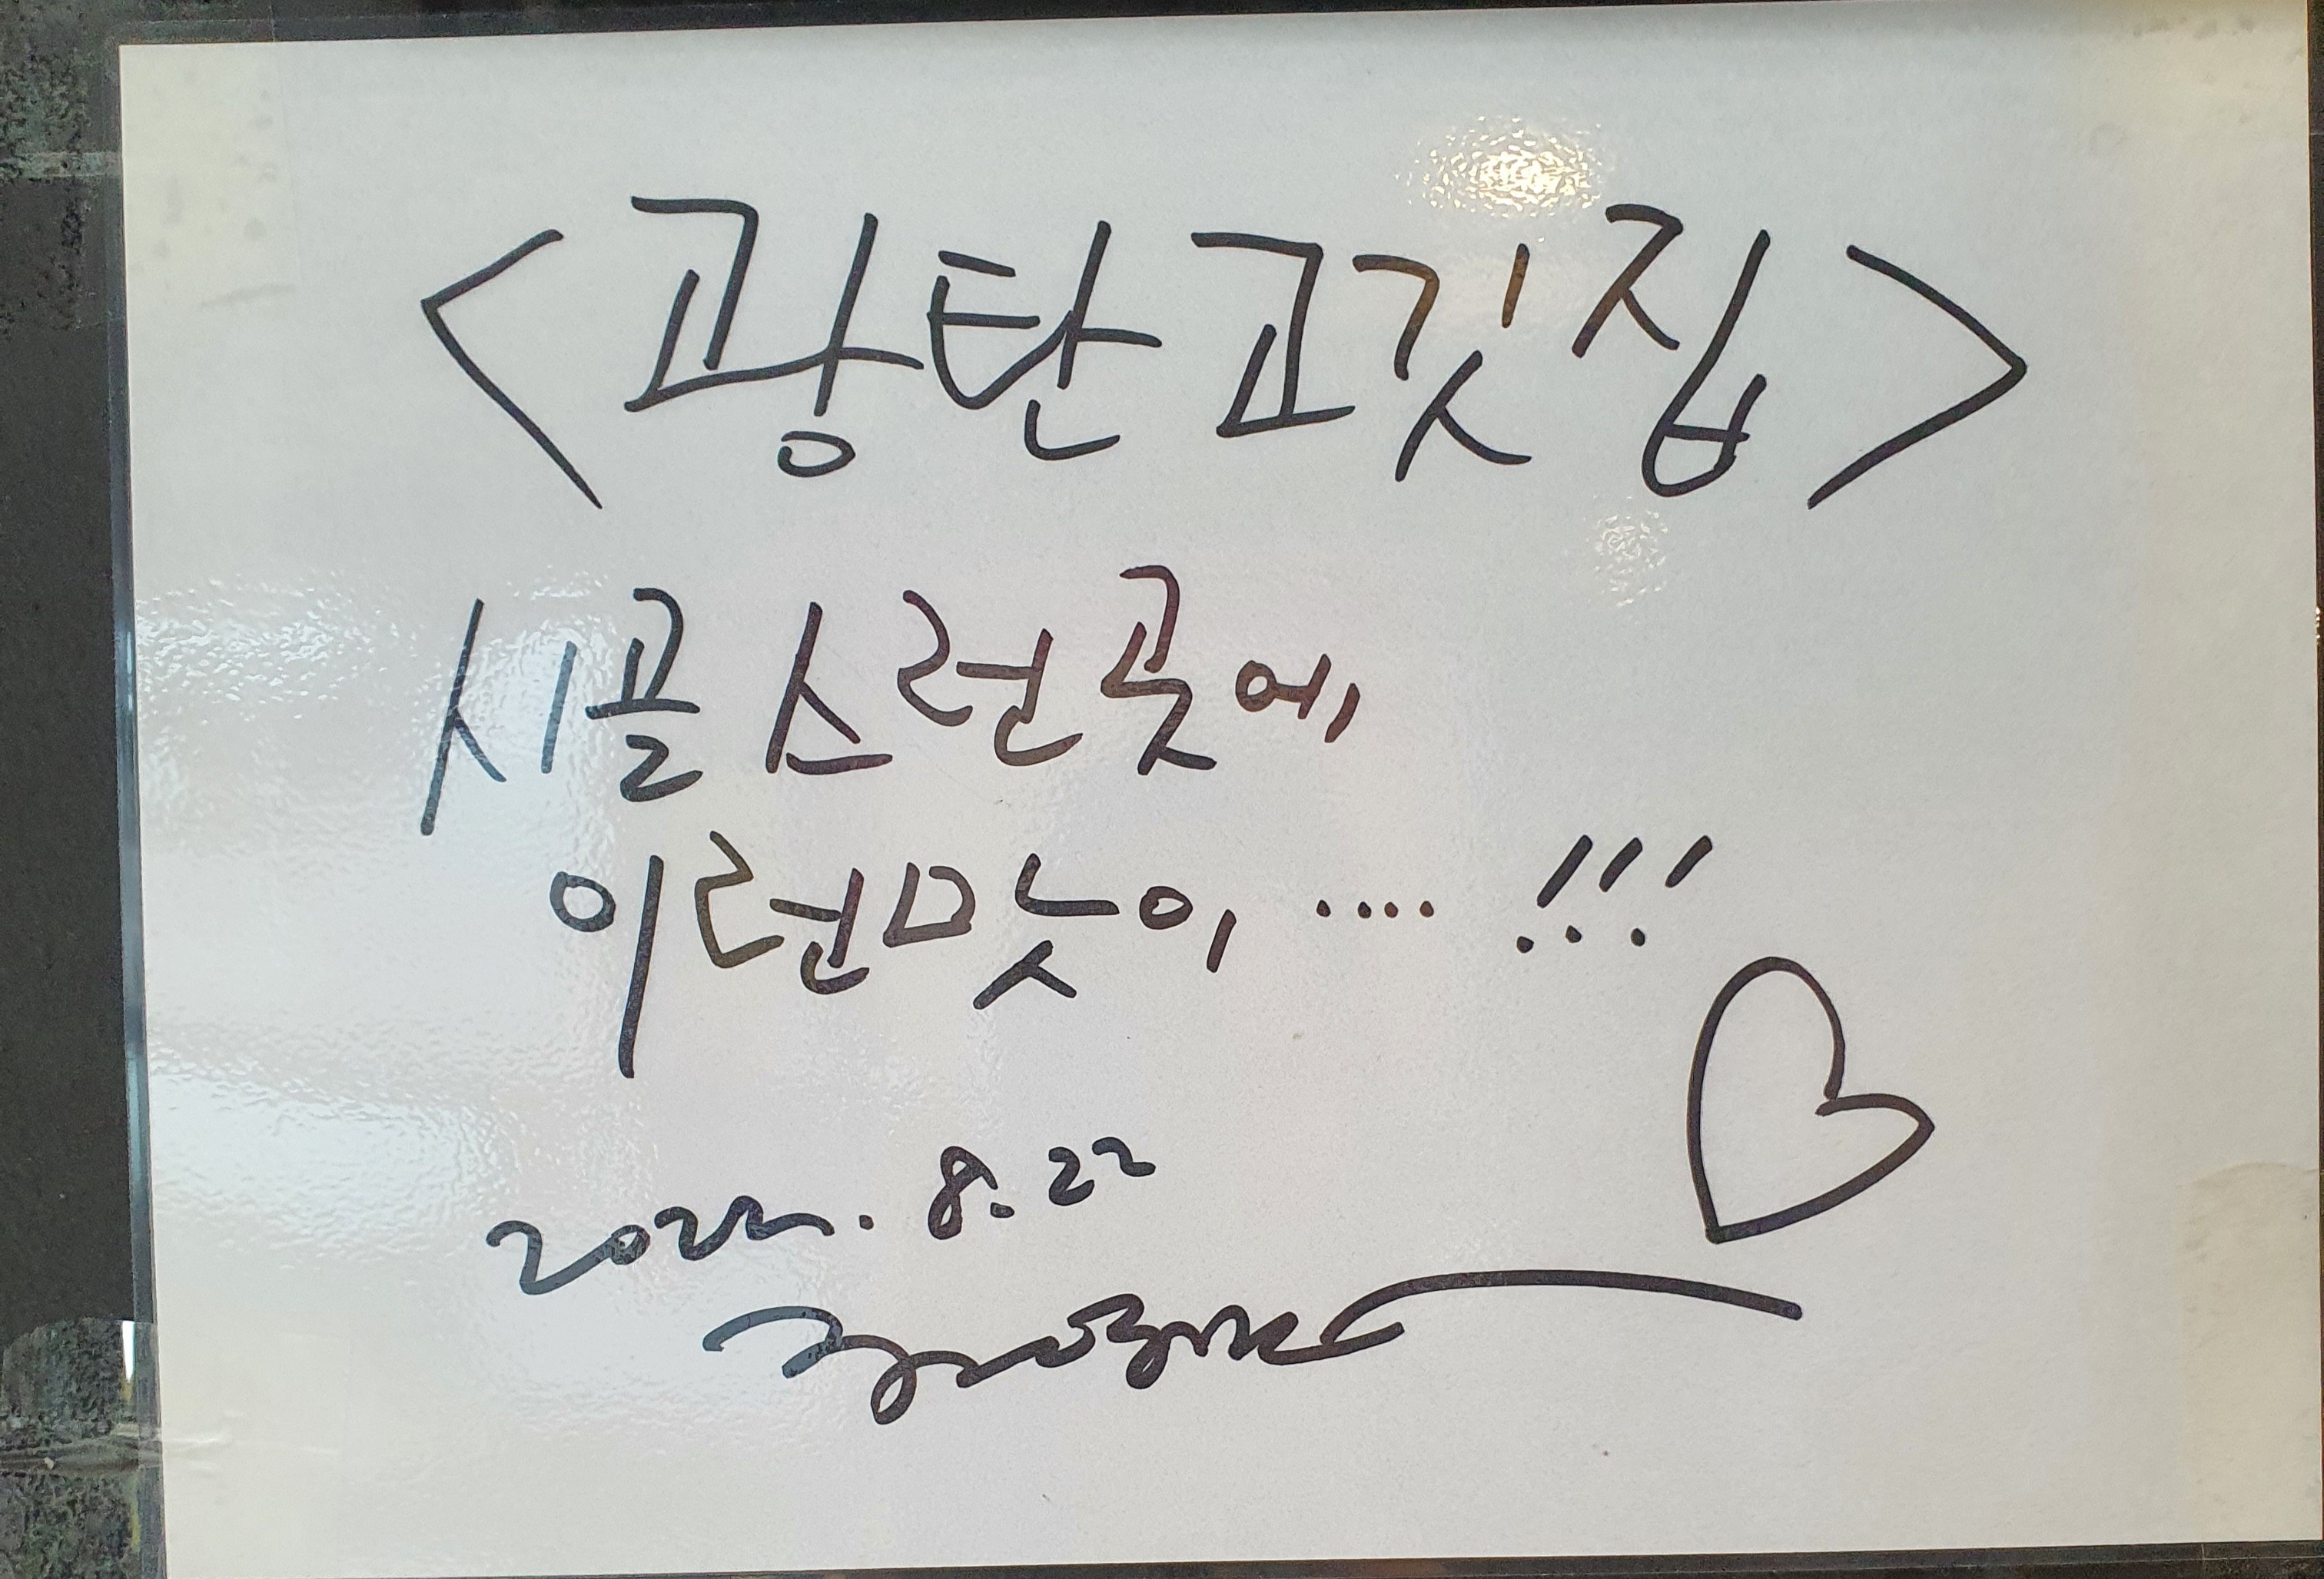 <광탄고깃집>
시골스런곳에,
이런맛이, ....!!!
2022. 8. 22